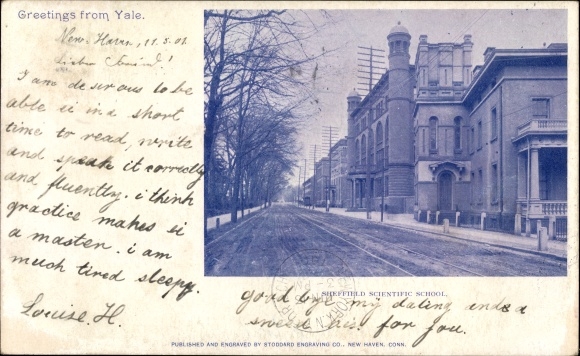 Greetings from Yale.
New-Haven, 11.5.01
I am desirous to be
able ii in a short
time to read, write
and speak it correctly
and fluently. i think
practice makes ii
a master. i am
much tired sleepy.
Louise. H.
SHEFFIELD SCIENTIFIC SCHOOL.
good bye my dating and a
sweed kis for you.
PUBLISHED AND ENGRAVED BY STODDARD ENGRAVING CO., NEW HAVEN, CONN.